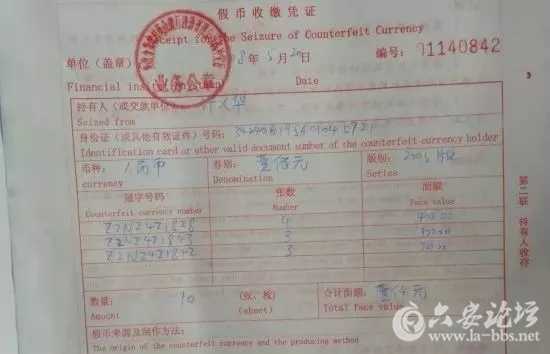 假币收缴凭证
Receipt for the Seizure of Counterfeit Currency
单位（盖章）
8年5月20日
编号：01140842
Financial institution
Date
业务公章
持有人（或交款单位）
Seized from
身份证（或其他有效证件）号码：
Identification card or other valid document number of the counterfeit currency holder
币种：人民币
券别：壹佰元
版别：2005版
currency
Denomination
Series
冠字号码
张数
面额
Counterfeit currency number
Number
Face value
4
400.00
3
300.00
3
数量：
10
(张、枚)
合计面额：壹仟元
Amount:
(sheet)
Total face value
假币来源及制作方法：
The origin of the counterfeit currency and the producing method
第二联 持有人收存
六安论坛
www.la-bbs.net